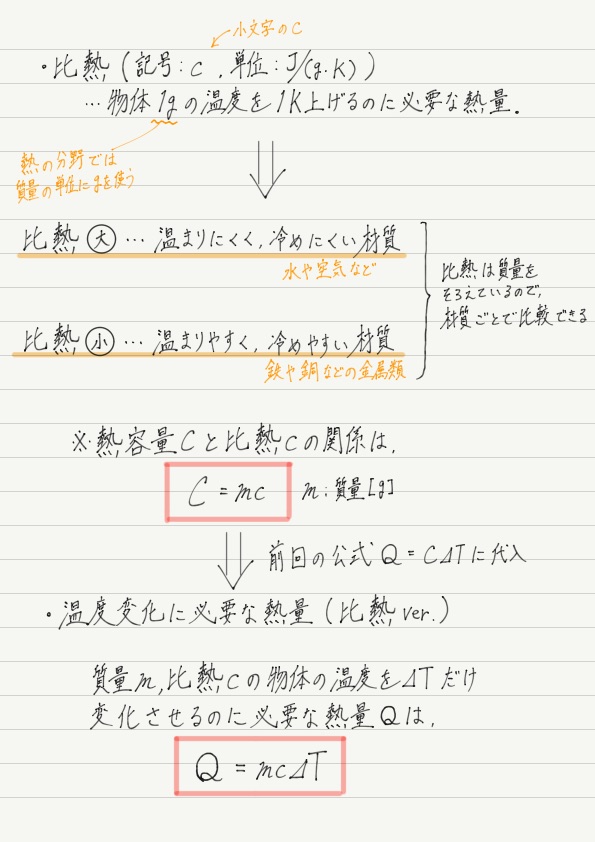 小文字のC
・比熱 (記号:c, 単位:J/(g·K))
…物体1gの温度を1K上げるのに必要な熱量.
熱の分野では
質量の単位にgを使う
比熱 大 … 温まりにくく, 冷めにくい材質
水や空気など
比熱は質量を
そろえているので,
材質ごとで比較できる
比熱 小 … 温まりやすく, 冷めやすい材質
鉄や銅などの金属類
※熱容量Cと比熱cの関係は,
C = mc m:質量[g]
前回の公式 Q = CΔTに代入
・温度変化に必要な熱量 (比熱 ver.)
質量m, 比熱cの物体の温度をΔTだけ
変化させるのに必要な熱量Qは,
Q = mcΔT